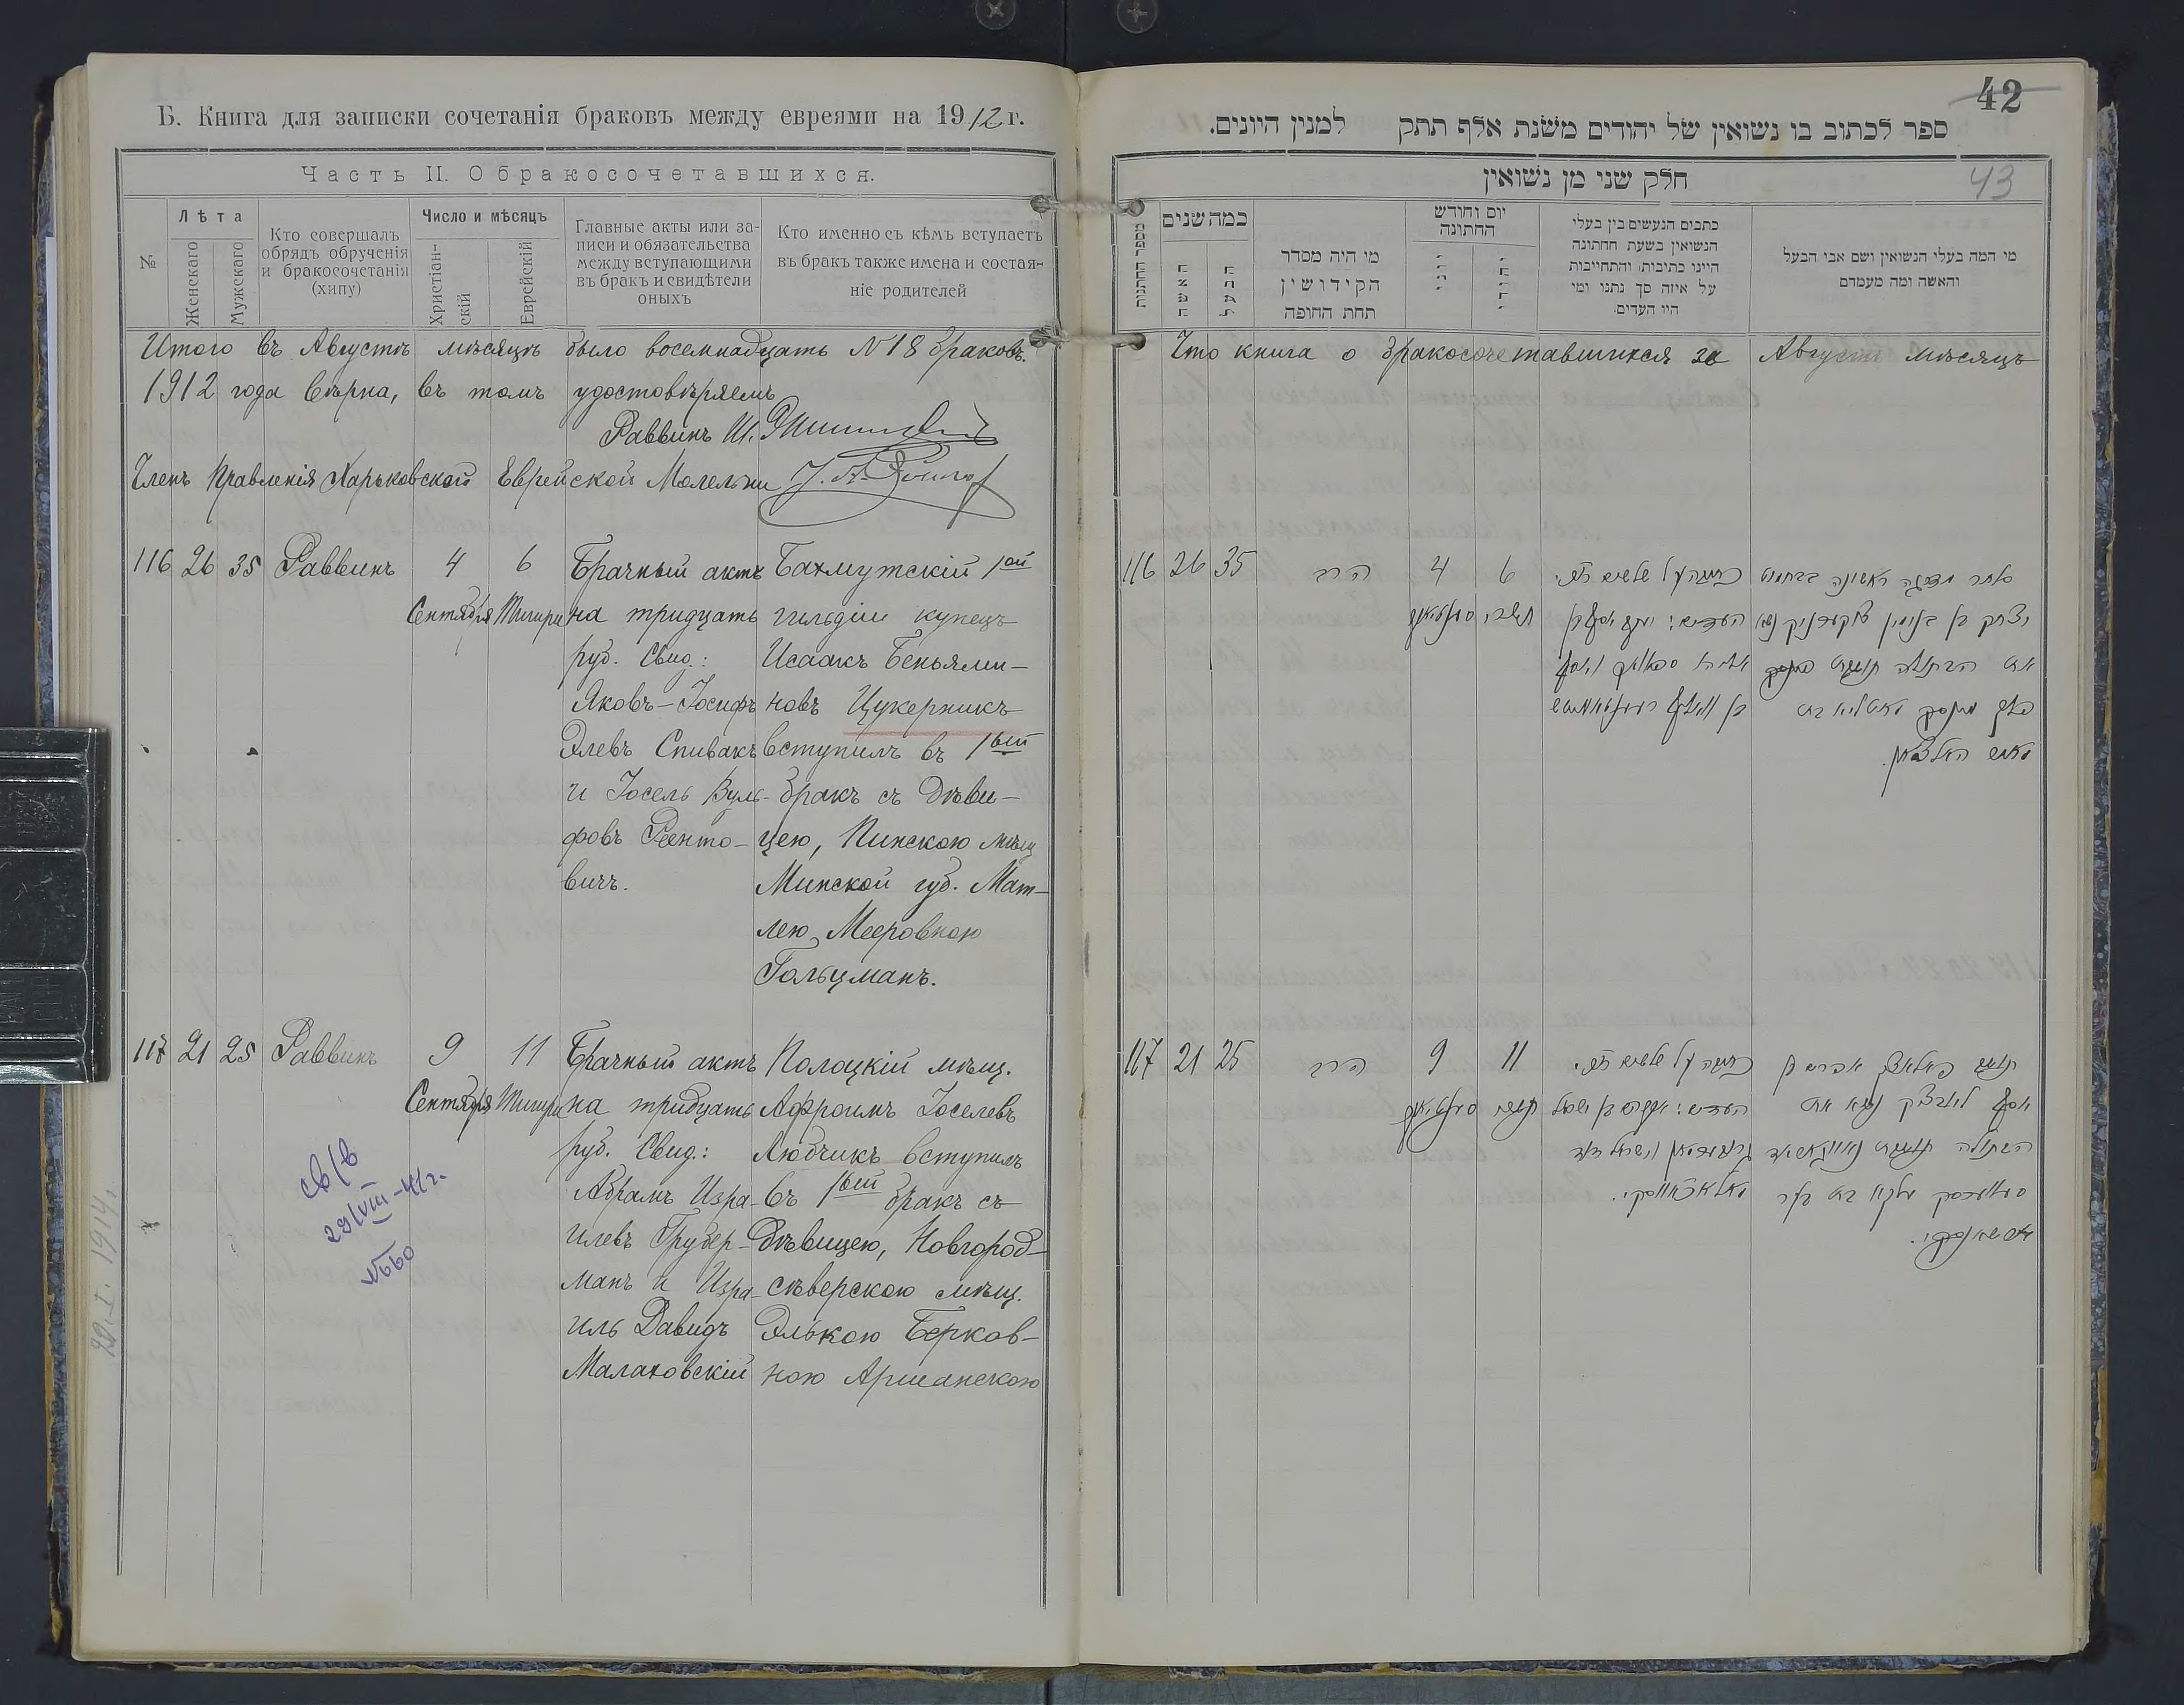 Б. Книга для записки сочетанія браковъ между евреями на 1912 г.
Часть II. О бракосочетавшихся.
№
Лѣта
Женскаго
Мужскаго
Кто совершалъ
обрядъ обрученія
и бракосочетанія
(хипу)
Число и мѣсяцъ
Христіан-
скій
Еврейскій
Главные акты или за-
писи и обязательства
между вступающими
въ бракъ и свидѣтели
оныхъ
Кто именно съ кѣмъ вступаетъ
въ бракъ также имена и состоя-
ніе родителей
Итого въ Августѣ мѣсяцѣ было восемнадцать N 18 браковъ.
1912 года вѣрна, въ томъ удостовѣряемъ
Раввинъ
Членъ Правленія Харьковской Еврейской Молельни
116 26 35 Раввинъ 4 6
Сентября Тишри
Брачный актъ
на тридцать
руб. Свид.:
Яковъ-Іосифъ
Элевъ Спивакъ
и Іосель Вуль-
фовъ Рента-
вичъ.
Бахмутскій 1ой
гильдіи купецъ
Исаакъ Беньями-
новъ Цукерникъ
вступилъ въ 1ый
бракъ съ дѣви-
цею, Пинскою мѣщ
Минской губ. Мат-
лею Мееровною
Гольцманъ.
117 21 25 Раввинъ 9 11
Сентября Тишри
Брачный актъ
на тридцать
руб. Свид.:
Абрамъ Изра-
илевъ Грубер-
манъ и Изра-
иль Давидъ
Малаховскій
Полоцкій мѣщ.
Афроимъ Іоселевъ
Любчикъ вступилъ
въ 1ый бракъ съ
дѣвицею, Новгород-
сѣверскою мѣщ.
Элькою Берков-
ною Аршанскою
св/в
29/VIII-41г.
29.I.1914г.
42
43
ספר לכתוב בו נשואין של יהודים משנת אלף תתק למנין היונים.
חלק שני מן נשואין
מספר החתונות
כמה שנים
האשה
הבעל
מי היה מסדר
הקידושין
תחת החופה
יום וחודש
החתונה
יוני
יהודי
כתבים הנעשים בין בעלי
הנשואין בשעת החתונה
היינו כתיבות והתחייבות
על איזה סך נתנו ומי
היו העדים.
מי המה בעלי הנשואין ושם אבי הבעל
והאשה ומה מעמדם
Что книга о бракосочетавшихся за Августъ мѣсяцъ
116 26 35 הרב 4 6
תשרי
כתובה על שלשים
העדים:
סוחר ראשונה
יצחק בן בנימין צוקערניק נשא
את הבתולה
האלצמאן.
117 21 25 הרב 9 11
תשרי
כתובה על שלשים
העדים: אברהם בן ישראל
גרובערמאן וישראל דוד
מאלאכאווסקי.
אפרים בן
יוסף ליובציק נשא את
הבתולה
עלקא בת בער